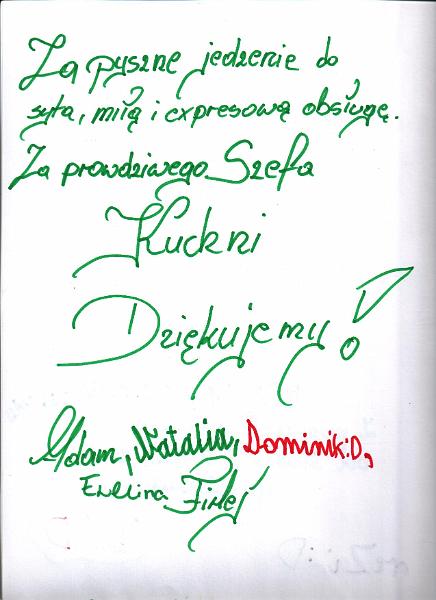 Za pyszne jedzenie do
syta, miłą i expresową obsługę.
Za prawdziwego Szefa
Kuchni
Dziękujemy!
Adam, Natalia, Dominik:D,
Ewelina Firlej